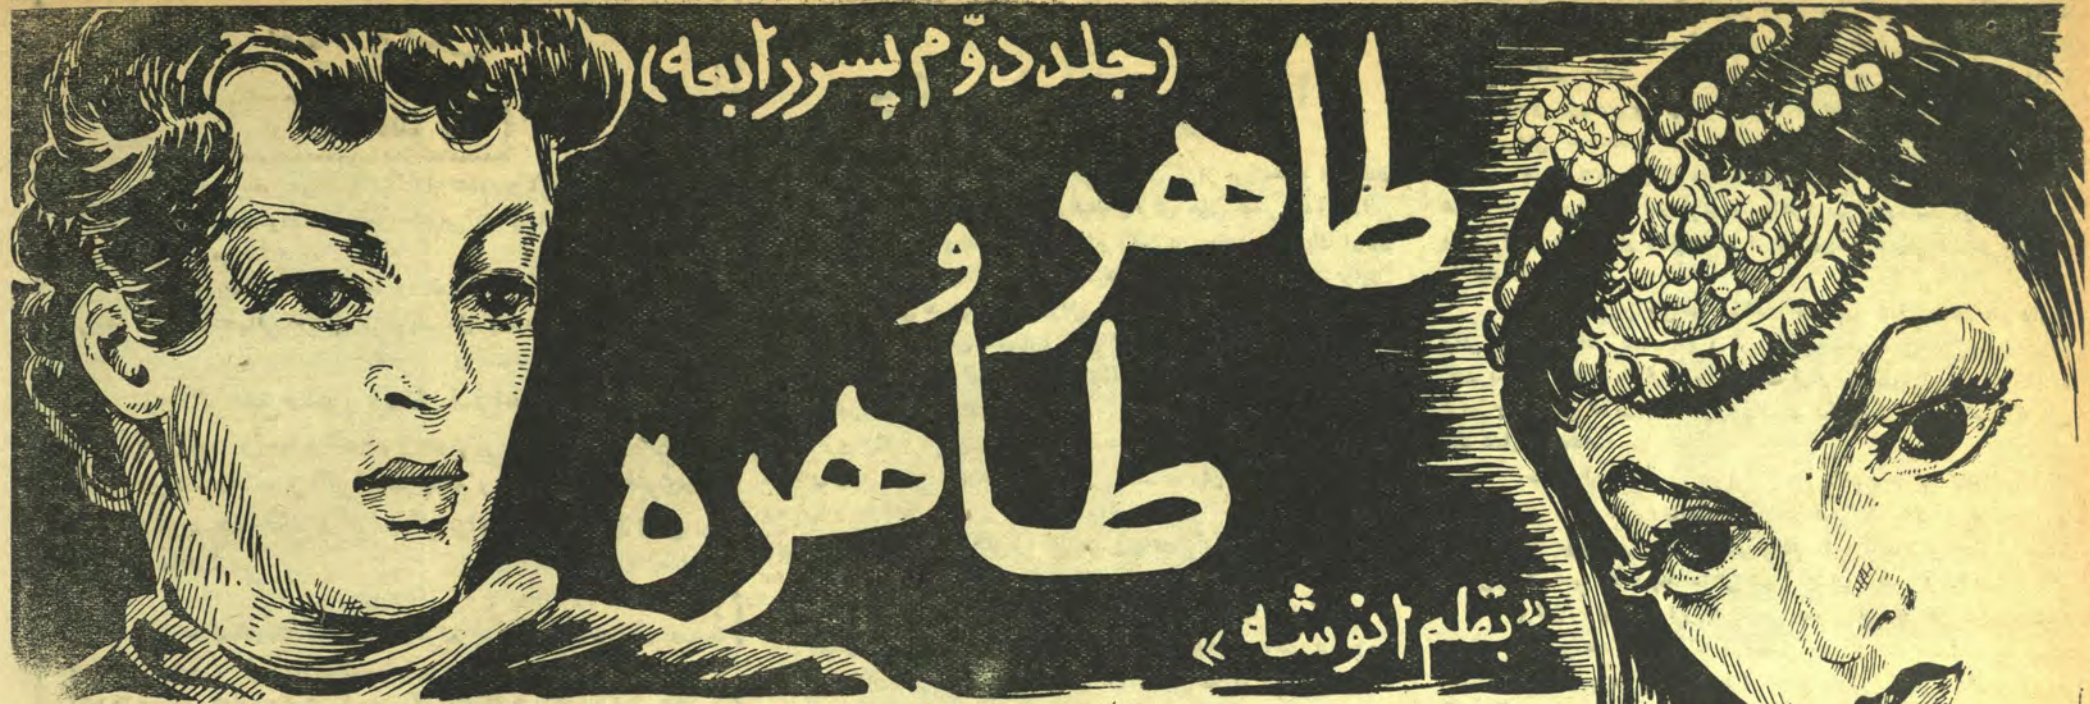 (جلد دوّم پسر رابعه)
طاهر
و
طاهره
«بقلم انوشه»